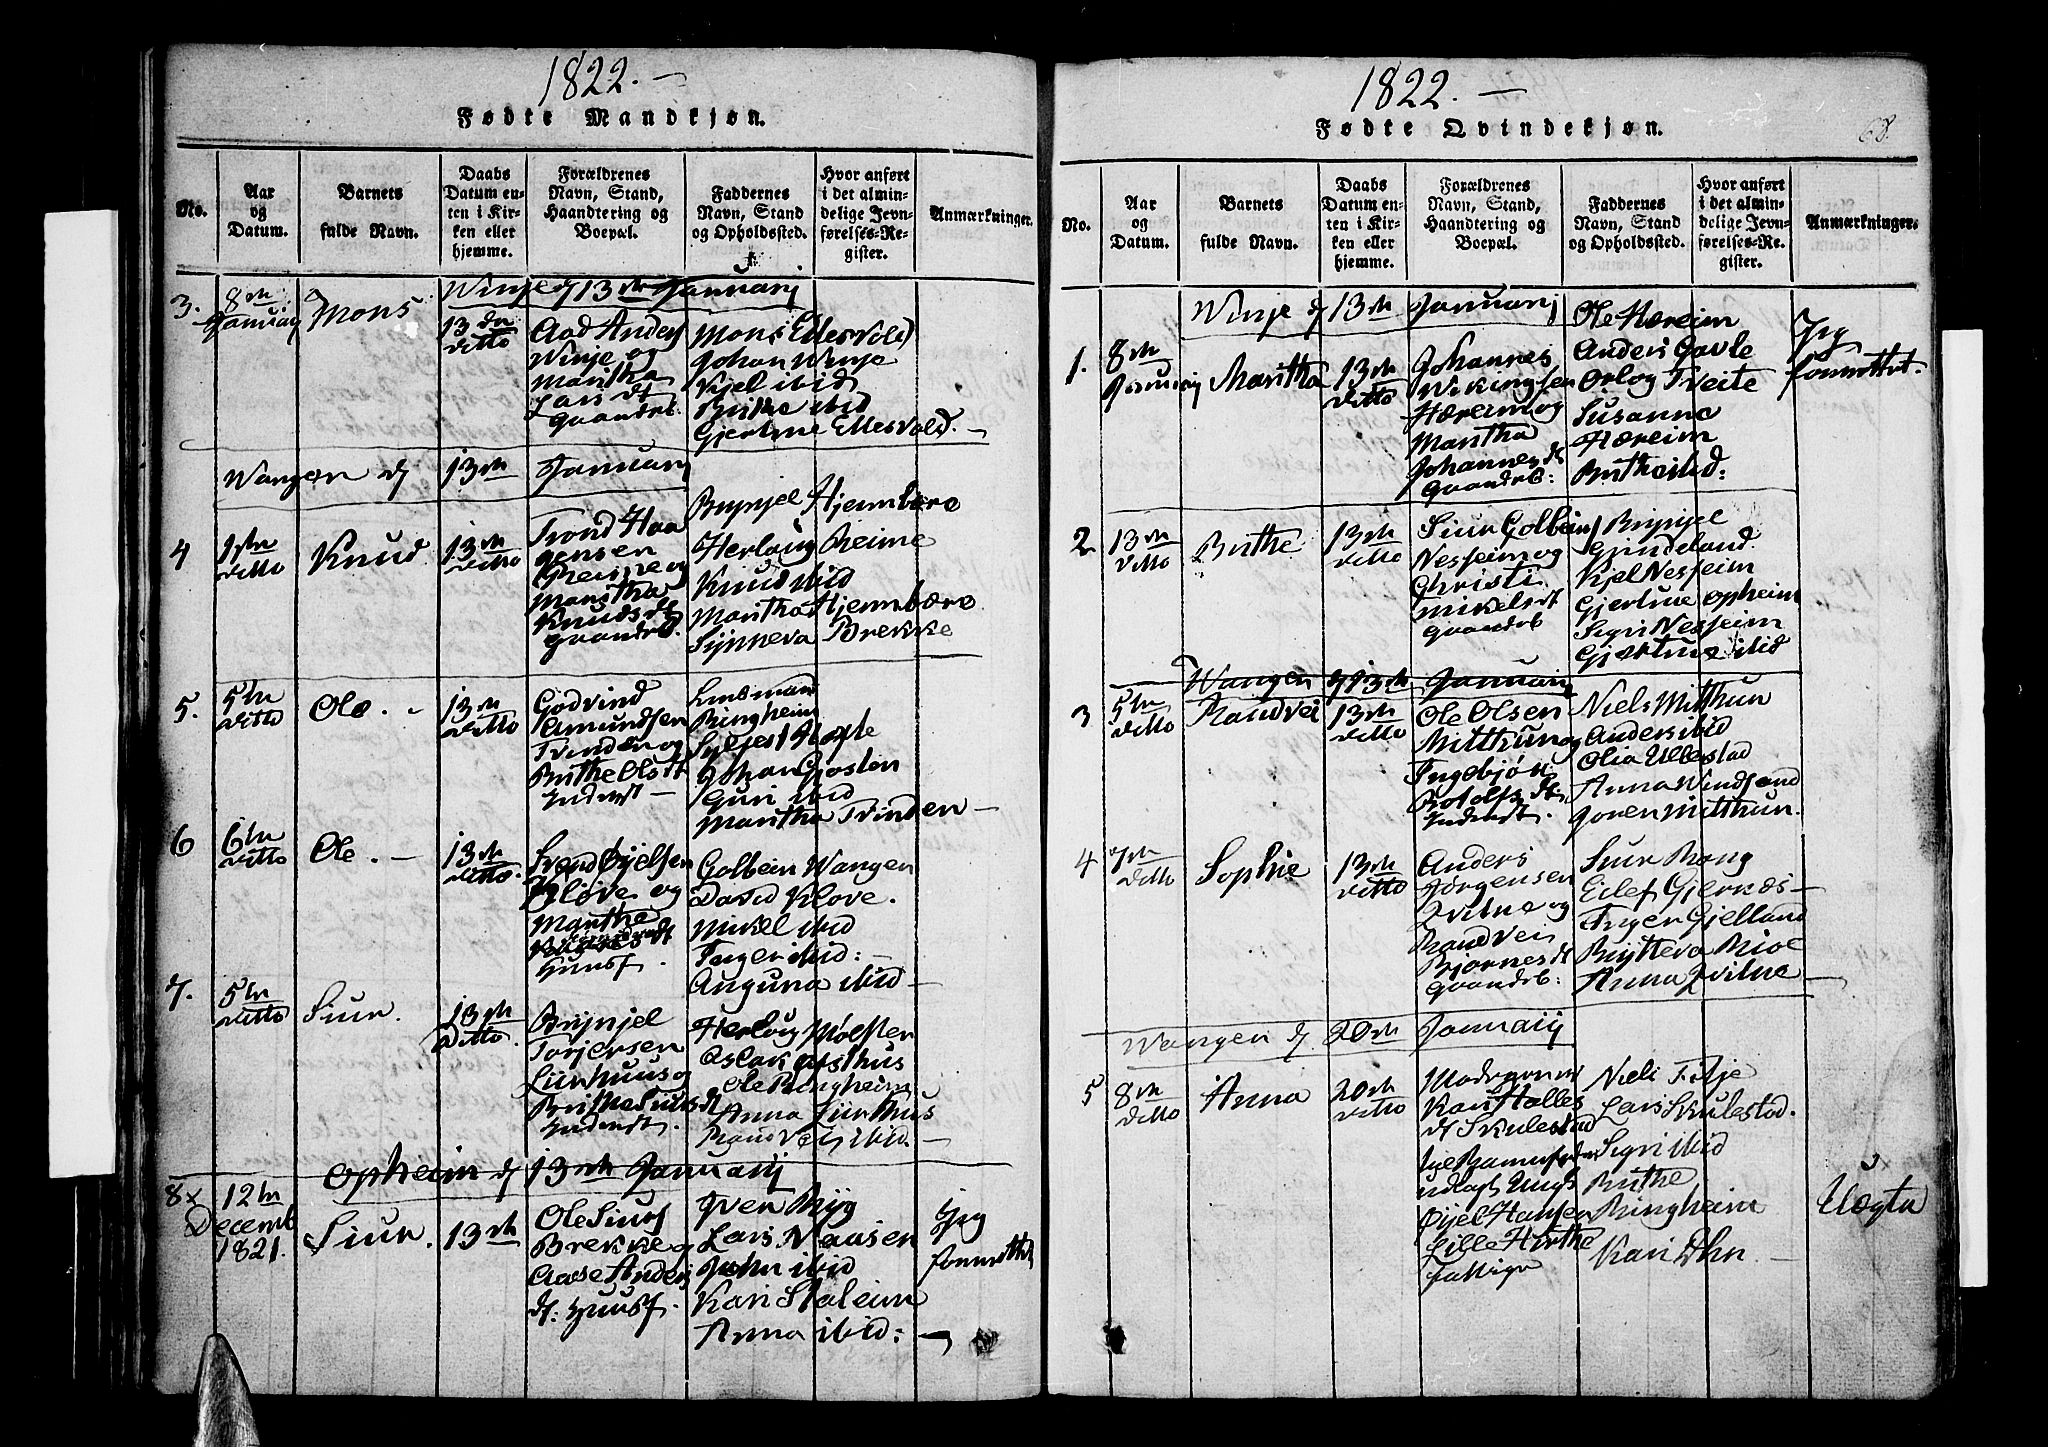 1822.
Fødte Mandkjøn.
No.
Aar
og
Datum.
Barnets
fulde Navn.
Daabs
Datum en-
ten i Kir-
ken eller
hjemme.
Forældrenes
Navn, Stand,
Haandtering og
Boepæl.
Faddernes
Navn, Stand
og Opholdssted.
Hvor anført
i det almin-
delige Jevn-
førelses-Re-
gister.
Anmærkninger.
Winje d 13de Januarij
3.
8de
Januarij
Mons
13de
ditto
Aad Anders
Winje og
Maritha
Lars dt
Gaardrb.
Mons
Johan Winje
Kjel ibid
Brithe ibid
Gjertrue
Wangen d 13de Januarij
4
1ste
ditto
Knud
13de
ditto
Trond Haa
gensen
Reime og
Maritha
Knuds dt
Gaardrb.
Brynjel Hjermbære
Herlaug Reime
Knud ibid
Maritha Hjermbære
Synneva Brekke
5.
5te
ditto
Ole. -
13de
ditto
Godvind
Amundsen
Tvinden og
Brithe Ols dt
Inderst -
Lensmand
Ringheim
Johan Gjosten
Guri ibid
Maritha Tvinden -
6
6te
ditto
Ole. -
13de
ditto.
Svend Øjelsen
Kløve og
Maritha
Huusf.
Golbein Wangen
David Kløve.
Mikel ibid
Inger ibid: -
Anguna ibid -
7.
5te
ditto
Siur.
13de
Ditto.
Brynjel
Torjersen
Liirhuus og
Brithe Siurs dt
Inderst.
Herloug Mølster
Aslak Asthus
Ole Ringheim
Anna Liirhus
Randvei ibid. -
Opheim d 13de Januarij
8x
12te
Decemb
1821.
Siur.
13de
Ole Siurs
Brekke og
Aase Anders
dt. Huusf.
Iver Ryg
Lars Naasen
John ibid
Kari Staleim
Anna ibid: -
Jeg
forrettet
1822. -
Fødte Qvindekjøn.
68.
No.
Aar
og
Datum.
Barnets
fulde Navn.
Daabs
Datum en-
ten i Kir-
ken eller
hjemme.
Forældrenes
Navn, Stand,
Haandtering og
Boepæl.
Faddernes
Navn, Stand
og Opholdssted.
Hvor anført
i det almin-
delige Jevn-
førelses-Re-
gister.
Anmærkninger.
Winje d 13de Januarij
1.
8de
Januarij
Maritha
13de
ditto
Johannes
Wikingsen
Hæreim og
Maritha
Johannes dt
Gaardrb:
Ole Hæreim
Anders Gavle
Orlog Tveite
Susanna
Hæreim
Brithe ibid:
Jeg
forrettet.
2
13de
ditto
Brithe
13de
ditto
Siur Golbeins
Nesheim og
Christi
Mikels dt
Gaardrb
Brynjel
Gjindeland.
Kjel Nesheim
Gjertrue Opheim
Sigri Nesheim
Gjertrue ibid
Wangen d 13de Januarij
3
5te
ditto
Randvei
13de
ditto
Ole Olsen
Mitthun og
Ingebjør
Rolefs dt
Inderst.
Niels Mitthun
Anders ibid
Olia Ullestad
Anna
Joren Mitthun.
4
7de
ditto
Sophie
13de
ditto
Anders
Jørgensen
Qvitne og
Randvei
Bjørnes dt
Gaardrb:
Siur Rong
Eilef Gjernæs -
Inger Gjelland
Brytteva Rioe
Anna Qvitne -
Wangen d. 20de Januarij
5
8de
ditto
Anna
20de
ditto
Moderen er
Kari Halles
dt Skulestad
udlagt Ungk
Øjel Hansen
Lille Hirthe
fattige
Niels Tvje
Lars Skulestad.
Sigri ibid
Brithe
Ringheim
Kari Dhn -
Uægta